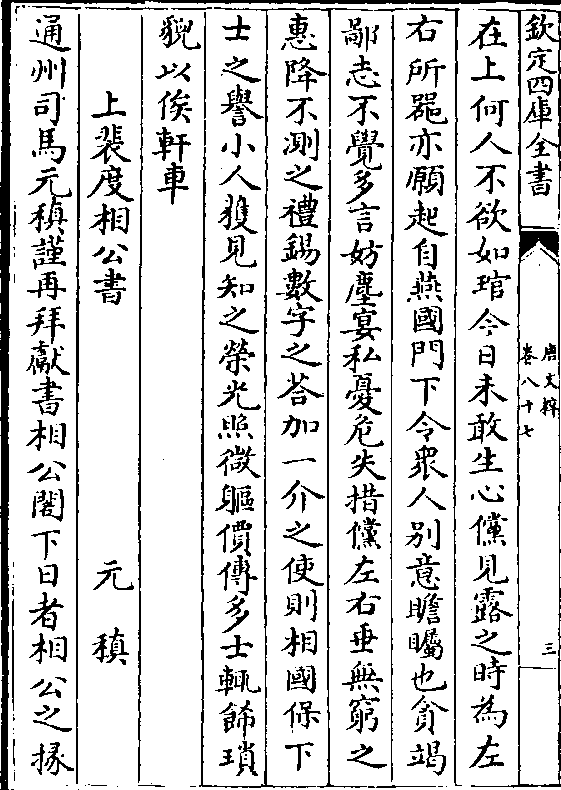 欽定四庫全書
唐文粹
卷八十七
三
在上何人不欲如琯今日未敢生心儻見露之時為左
右所嗤亦願起自燕國門下令衆人别意瞻矚也貪竭
鄙志不覺多言妨塵宴私憂危失措儻左右垂無窮之
惠降不測之禮錫數字之荅加一介之使則相國保下
士之譽小人獲見知之榮光照微軀價傳多士輒飾瑣
貌以俟軒車
上裴度相公書　元稹
通州司馬元稹謹再拜獻書相公閤下日者相公之掾